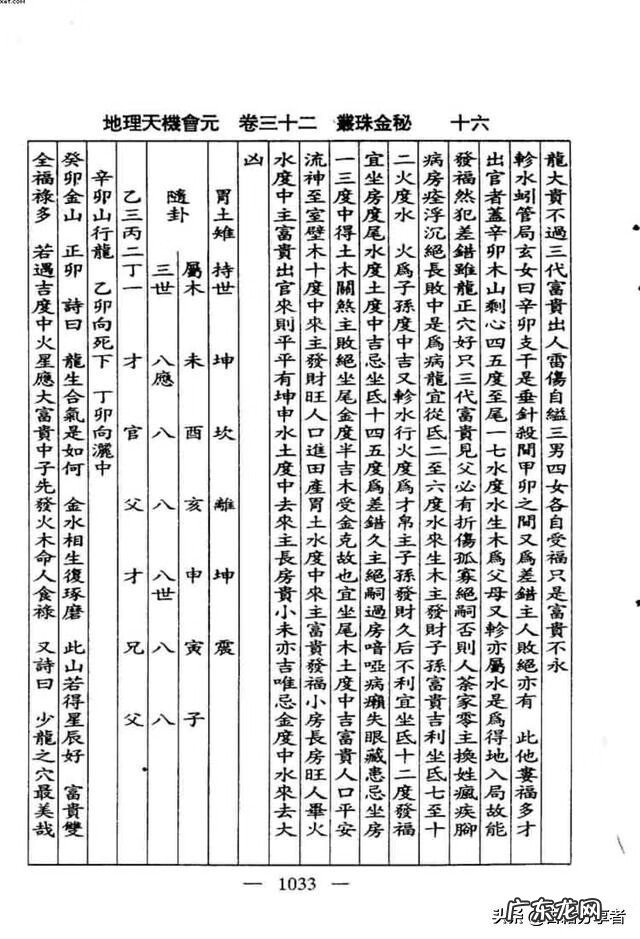 xet.com
地理天機會元　卷三十二　叢珠金秘　十六
龍大貴不過三代富貴出人雷傷自縊三男四女各自受福只是富貴不永
軫水蚓管局玄女曰辛卯支干是垂針殺間甲卯之間又爲差錯主人敗絕亦有　此他婁福多才
出官者蓋辛卯木山剩心四五度至尾一七水度水生木爲父母又軫亦屬水是爲得地入局故能
發福然犯差錯雖龍正穴好只三代富貴見父必有折傷孤寡絕嗣否則人荼家零主換姓瘋疾腳
病房痊浮沉絕長敗中是爲病龍宜從氐二至六度水來生木主發財子孫富貴吉利坐氐七至十
二火度水　火爲子孫度中吉又軫水行火度爲才帛主子孫發財久后不利宜坐氐十二度發福
宜坐房度尾水度土度中吉忌坐氐十四五度爲差錯久主絕嗣過房喑啞病癩失眼藏患忌坐房
一三度中得土木關煞主敗絕坐尾金度半吉木受金克故也宜坐尾木土度中吉富貴人口平安
流神至室壁木十度中來主發財旺人口進田產胃土水度中來主富貴發福小房長房旺人畢火
水度中主富貴出官來則平平有坤申水土度中去來主長房貴小未亦吉唯忌金度中水來去大
凶
胃土雉　持世　坤　坎　離　坤　震
隨卦　屬木　未　酉　亥　申　寅　子
三世　八應　八　八　八世　八　八
乙三丙二丁一　才　官　父　才　兄　父
辛卯山行龍　乙卯向死下　丁卯向灑中
癸卯金山　正卯　詩曰　龍生合氣是如何　金水相生復琢磨　此山若得星辰好　富貴雙
全福祿多　若遇吉度中火星應大富貴中子先發火木命人食祿　又詩曰　少龍之穴最美哉
— 1033 —
广东龙网